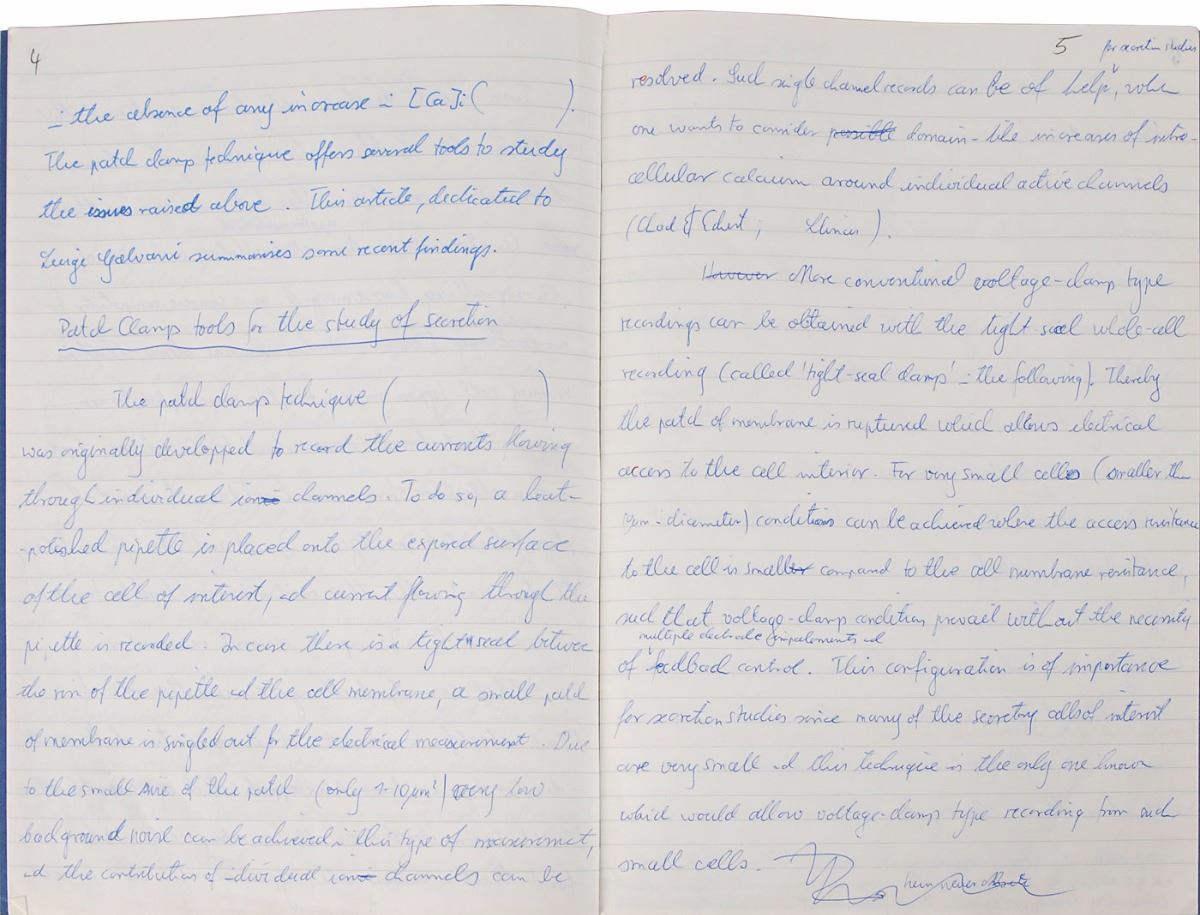 4
in the absence of any increase in [Ca]i (          ).
The patch clamp technique offers several tools to study
the issues raised above. This article, dedicated to
Luigi Galvani summarises some recent findings.
Patch Clamp tools for the study of secretion
The patch clamp technique (          ,          )
was originally developped to record the currents flowing
through individual ionic channels. To do so, a heat-
-polished pipette is placed onto the exposed surface
of the cell of interest, and current flowing through the
pipette is recorded. In case there is a tight seal between
the rim of the pipette and the cell membrane, a small patch
of membrane is singled out for the electrical measurement. Due
to the small size of the patch (only 1-10 µm²) very low
background noise can be achieved in this type of measurement,
and the contribution of individual ionic channels can be
5
for secretion studies
resolved. Such single channel records can be of help, when
one wants to consider possible domain-like increases of intra-
cellular calcium around individual active channels
(Chad & Eckert,          Llinas          ).
However More conventional voltage-clamp type
recordings can be obtained with the tight-seal whole-cell
recording (called 'tight-seal clamp' in the following). Thereby
the patch of membrane is ruptured which allows electrical
access to the cell interior. For very small cells (smaller
µm-diameter) conditions can be achieved where the access resistance
to the cell is smaller compared to the cell membrane resistance,
such that voltage-clamp condition prevail without the necessity
multiple electrode impalements and
of feedback control. This configuration is of importance
for secretion studies since many of the secretory cells of interest
are very small and this technique is the only one known
which would allow voltage-clamp type recording from such
small cells.